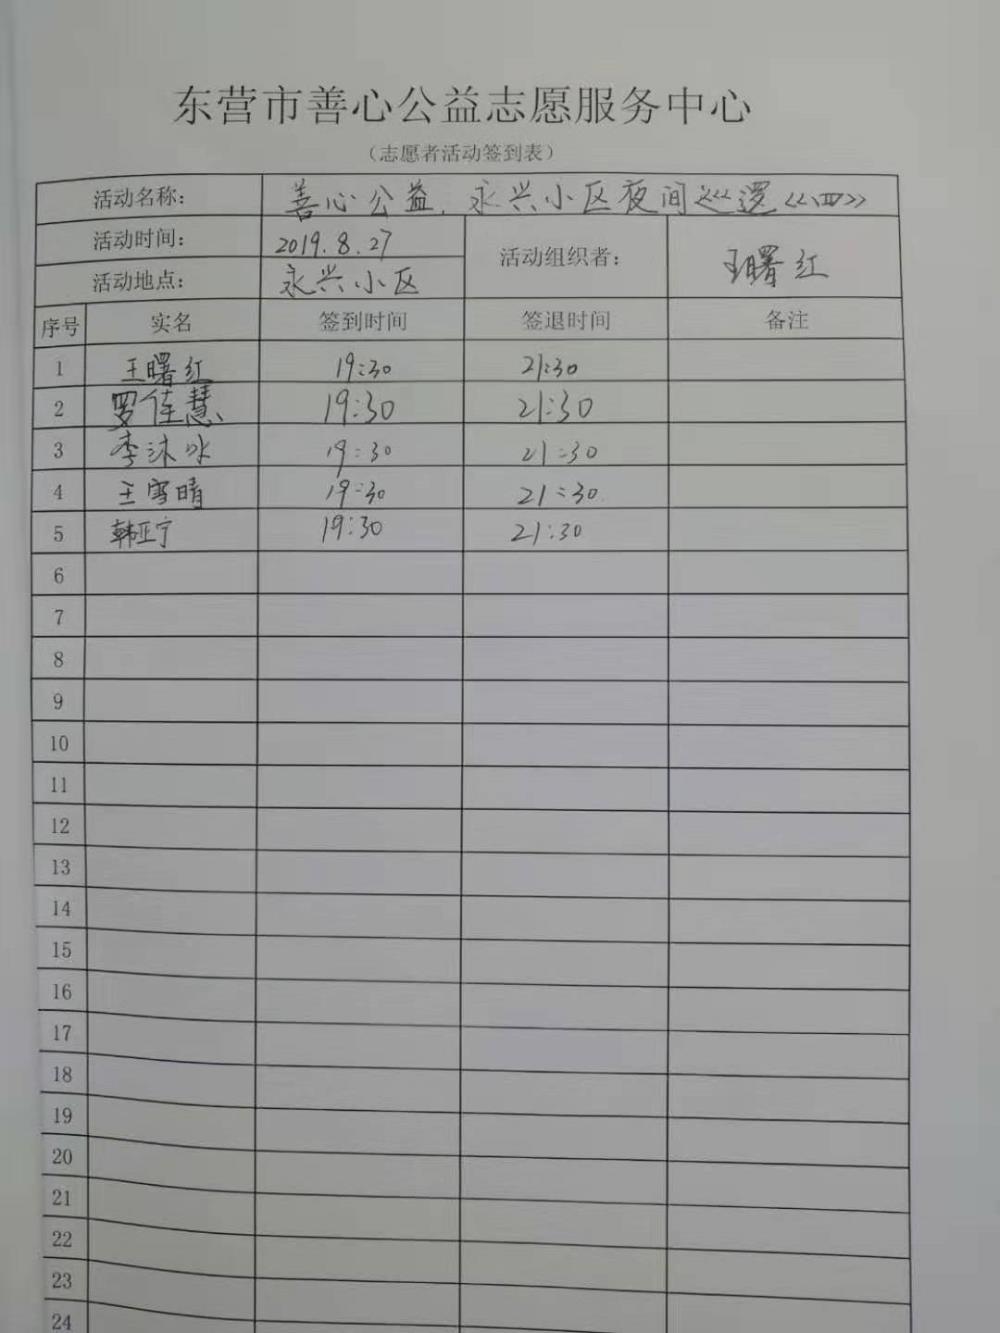 东营市善心公益志愿服务中心
（志愿者活动签到表）
活动名称： 善心公益.永兴小区夜间巡逻<<四>>
活动时间： 2019.8.27 活动组织者： 王曙红
活动地点： 永兴小区
序号 实名 签到时间 签退时间 备注
1 王曙红 19:30 21:30
2 罗佳慧 19:30 21:30
3 李沐冰 19:30 21:30
4 王雪晴 19:30 21:30
5 韩亚宁 19:30 21:30
6
7
8
9
10
11
12
13
14
15
16
17
18
19
20
21
22
23
24